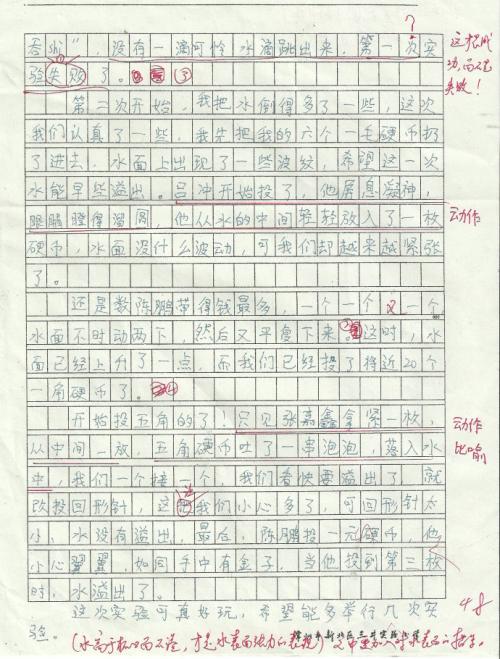 ?
吞shi”，没有一滴可怜水滴跳出来，第一次实
验失败了。③
这很成
功，而不是
失败！
第二次开始，我把水倒得多了一些，这次
我们认真了一些，我先把我的六个一毛硬币扔
了进去，水面上出现了一些波纹，希望这一次
水能早些溢出。吕冲开始投了，他屏息凝神，
眼睛瞪得溜圆，他从水的中间轻轻放入了一枚
动作
硬币，水面没什么波动，可我们却越来越紧张
了。
还是数陈鹏带得钱最多，一个一个又一个
水面不时动两下，然后又平复下来。这时，水
面已经上升了一点，而我们已经投了将近20个
一角硬币了。④
开始投五角的了！只见张嘉鑫拿紧一枚，
动作
比喻
从中间一放，五角硬币吐了一串泡泡，落入水
中，我们一个接一个，我们看快要溢出了，就
改投回形针，这我们小心多了，可回形针太
小，水没有溢出，最后，陈鹏投一元硬币，他
小心翼翼，如同手中有金子，当他投到第三枚
时，水溢出了。
48
这次实验可真好玩，希望能多举行几次实
验。
（水高于杯口而不溢，才是水表面张力的表现）